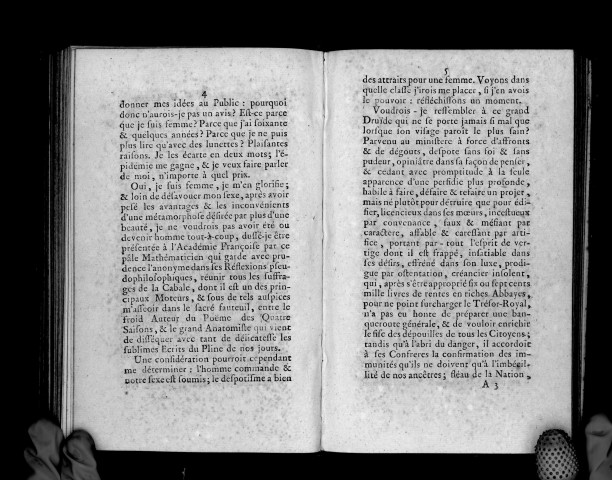 4
donner mes idées au Public : pourquoi
donc n'aurois-je pas un avis ? Est-ce parce
que je suis femme ? Parce que j'ai soixante
& quelques années ? Parce que je ne puis
plus lire qu'avec des lunettes ? Plaisantes
raisons. Je les écarte en deux mots ; l'é-
pidémie me gagne, & je veux faire parler
de moi, n'importe à quel prix.
Oui, je suis femme, je m'en glorifie ;
& loin de désavouer mon sexe, après avoir
pesé les avantages & les inconvénients
d'une métamorphose désirée par plus d'une
beauté, je ne voudrois pas avoir été ou
devenir homme tout-à-coup, dussé-je être
présentée à l'Académie Françoise par ce
pâle Mathématicien qui garde avec pru-
dence l'anonyme dans les Réflexions pseu-
dophilosophiques, réunir tous les suffra-
ges de la Cabale, dont il est un des prin-
cipaux Moteurs, & sous de tels auspices
m'asseoir dans le sacré fauteuil, entre le
froid Auteur du Poëme des Quatre
Saisons, & le grand Anatomiste qui vient
de disséquer avec tant de délicatesse les
sublimes Ecrits du Pline de nos jours.
Une considération pourroit cependant
me déterminer : l'homme commande &
notre sexe est soumis ; le despotisme a bien
5
des attraits pour une femme. Voyons dans
quelle classe j'irois me placer, si j'en avois
le pouvoir : réfléchissons un moment.
Voudrois-je ressembler à ce grand
Druïde qui ne se porte jamais si mal que
lorsque son visage paroît le plus sain ?
Parvenu au ministere à force d'affronts
& de dégoûts, despote sans foi & sans
pudeur, opiniâtre dans sa façon de penser,
& cedant avec promptitude à la seule
apparence d'une perfidie plus profonde,
habile à faire, défaire & refaire un projet,
mais né plutôt pour détruire que pour édi-
fier, licencieux dans ses mœurs, incestueux
par convenance, faux & méfiant par
caractère, affable & caressant par arti-
fice, portant par-tout l'esprit de ver-
tige dont il est frappé, insatiable dans
ses désirs, effréné dans son luxe, prodi-
gue par ostentation, créancier insolent,
qui, après s'être approprié six ou sept cents
mille livres de rentes en riches Abbayes,
pour ne point surcharger le Trésor-Royal,
n'a pas eu honte de préparer une ban-
queroute générale, & de vouloir enrichir
le fisc des dépouilles de tous les Citoyens ;
tandis qu'à l'abri du danger, il accordoit
à ses Confreres la confirmation des im-
munités qu'ils ne doivent qu'à l'imbécil-
lité de nos ancêtres ; fléau de la Nation,
A 3